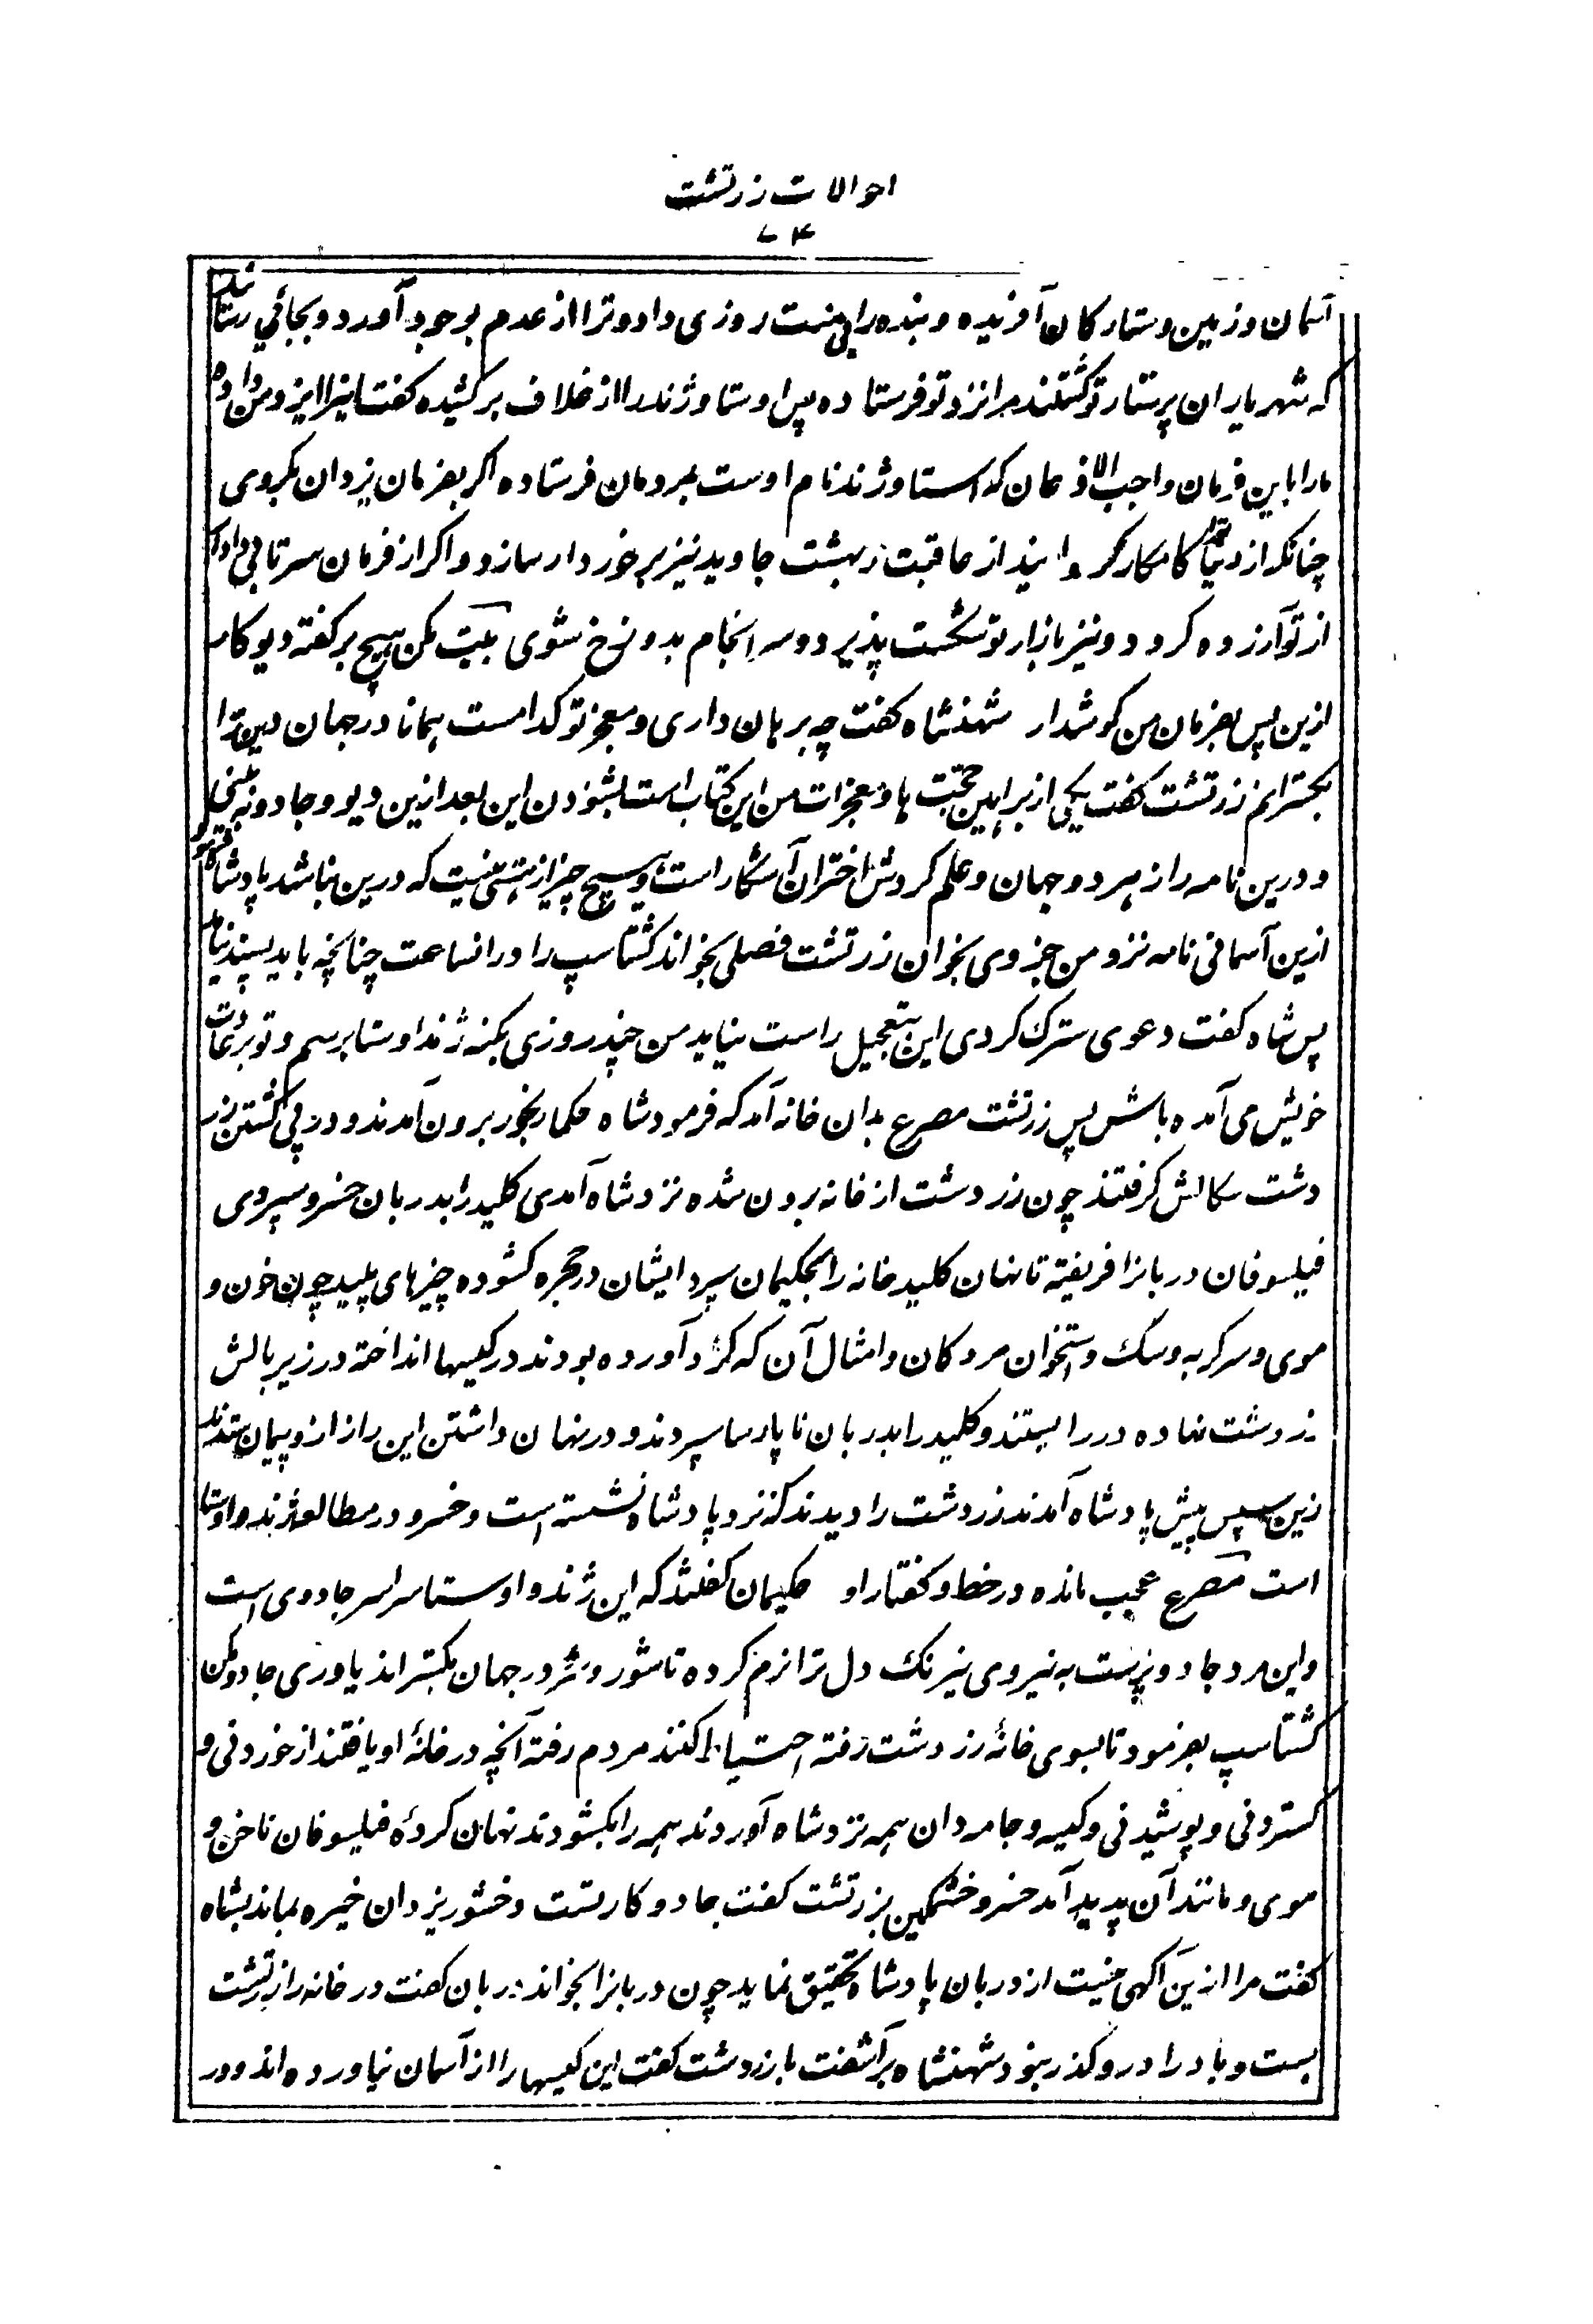 احوالات زرتشت
۷۴
آسمان و زمین و ستارکان آفریده و بنده را بی منت روزی داد و ترا از عدم بوجود آورد و بجائی رسانید
که شهریاران پرستار تو کشتند مرا نزد تو فرستاده پس اوستا و ژند را از غلاف برکشیده کفت اینرا ایزد بمن داده
مارا باین فرمان واجب الاذعان که استا و ژند نام اوست بمردمان فرستاده اکر بفرمان یزدان بکروی
چنانکه از دنیا کامکار کردانید از عاقبت و بهشت جاوید نیز برخوردار سازد و اکر از فرمان سرتابی دادار
از تو آزرده کردد و نیز بازار تو شکست پذیرد و سرانجام بدوزخ شوی بیت مکن هیچ بر کفته دیو کار
ازین پس بفرمان من کوشدار شهنشاه کفت چه برهان داری و معجز تو کدامست بنما تا در جهان دین ترا
بکسترانم زرتشت کفت یکی از براهین حجت ها و معجزات من این کتاب است بشنودن این بعد ازین دیو و جادو نه بینی
و درین نامه راز هر دو جهان و علم کردش اختران آشکار است و هیچ چیز از هستی نیست که درین نباشد پادشاه فرمود
ازین آسمانی نامه نزد من جزوی بخوان زرتشت فصلی بخواند کشتاسپ را در انساعت چنانچه باید پسند نیامد
پس شاه کفت دعوی سترک کردی این بتعجیل راست نیاید من چند روزی بکنه ژند اوستا برسم و تو بر عادت
خویش می آمده باش پس زرتشت مصرع بدان خانه آمد که فرمود شاه حکما رنجور برون آمدند و در پی کشتن زر
دشت سکالش کرفتند چون زردشت از خانه برون شده نزد شاه آمدی کلید را بدربان خسرو سپردی
فیلسوفان دربانرا فریفته تا نهان کلید خانه را بحکیمان سپرد ایشان در حجره کشوده چیزهای پلید چون خون و
موی و سر کربه و سک و استخوان مردکان و امثال آن که کرد آورده بودند در کیسها انداخته در زیر بالش
زردشت نهاده در را بستند و کلید را بدربان ناپارسا سپردند و در نهان داشتن این راز ازو پیمان ستدند
زین سپس پیش پادشاه آمدند زردشت را دیدند که نزد پادشاه نشسته است و خسرو در مطالعه ژند و اوستا
است مصرع عجب مانده در خط و کفتار او حکیمان کفتند که این ژند و اوستا سراسر جادوی است
و این مرد جادو پرست به نیروی نیرنک دل ترا نرم کرده تا شور و شر در جهان بکستراند یاوری جادو مکن
کشتاسپ بفرمود تا بسوی خانهٔ زردشت رفته احتیاط کنند مردم رفته آنچه در خانهٔ او یافتند از خوردنی و
کستردنی و پوشیدنی و کیسه و جامه دان همه نزد شاه آوردند همه را بکشودند نهان کردهٔ فیلسوفان ناخن و
موی و مانند آن پدید آمد خسرو خشمکین بزرتشت کفت جادو کار تست وخشور یزدان خیره بماند بشاه
کفت مرا ازین آکهی نیست از دربان پادشاه تحقیق نماید چون دربانرا بخواند دربان کفت در خانه را زرتشت
بست و باد را درو کذر نبود شهنشاه برآشفت با زردشت کفت این کیسها را از آسمان نیاورده اند و در